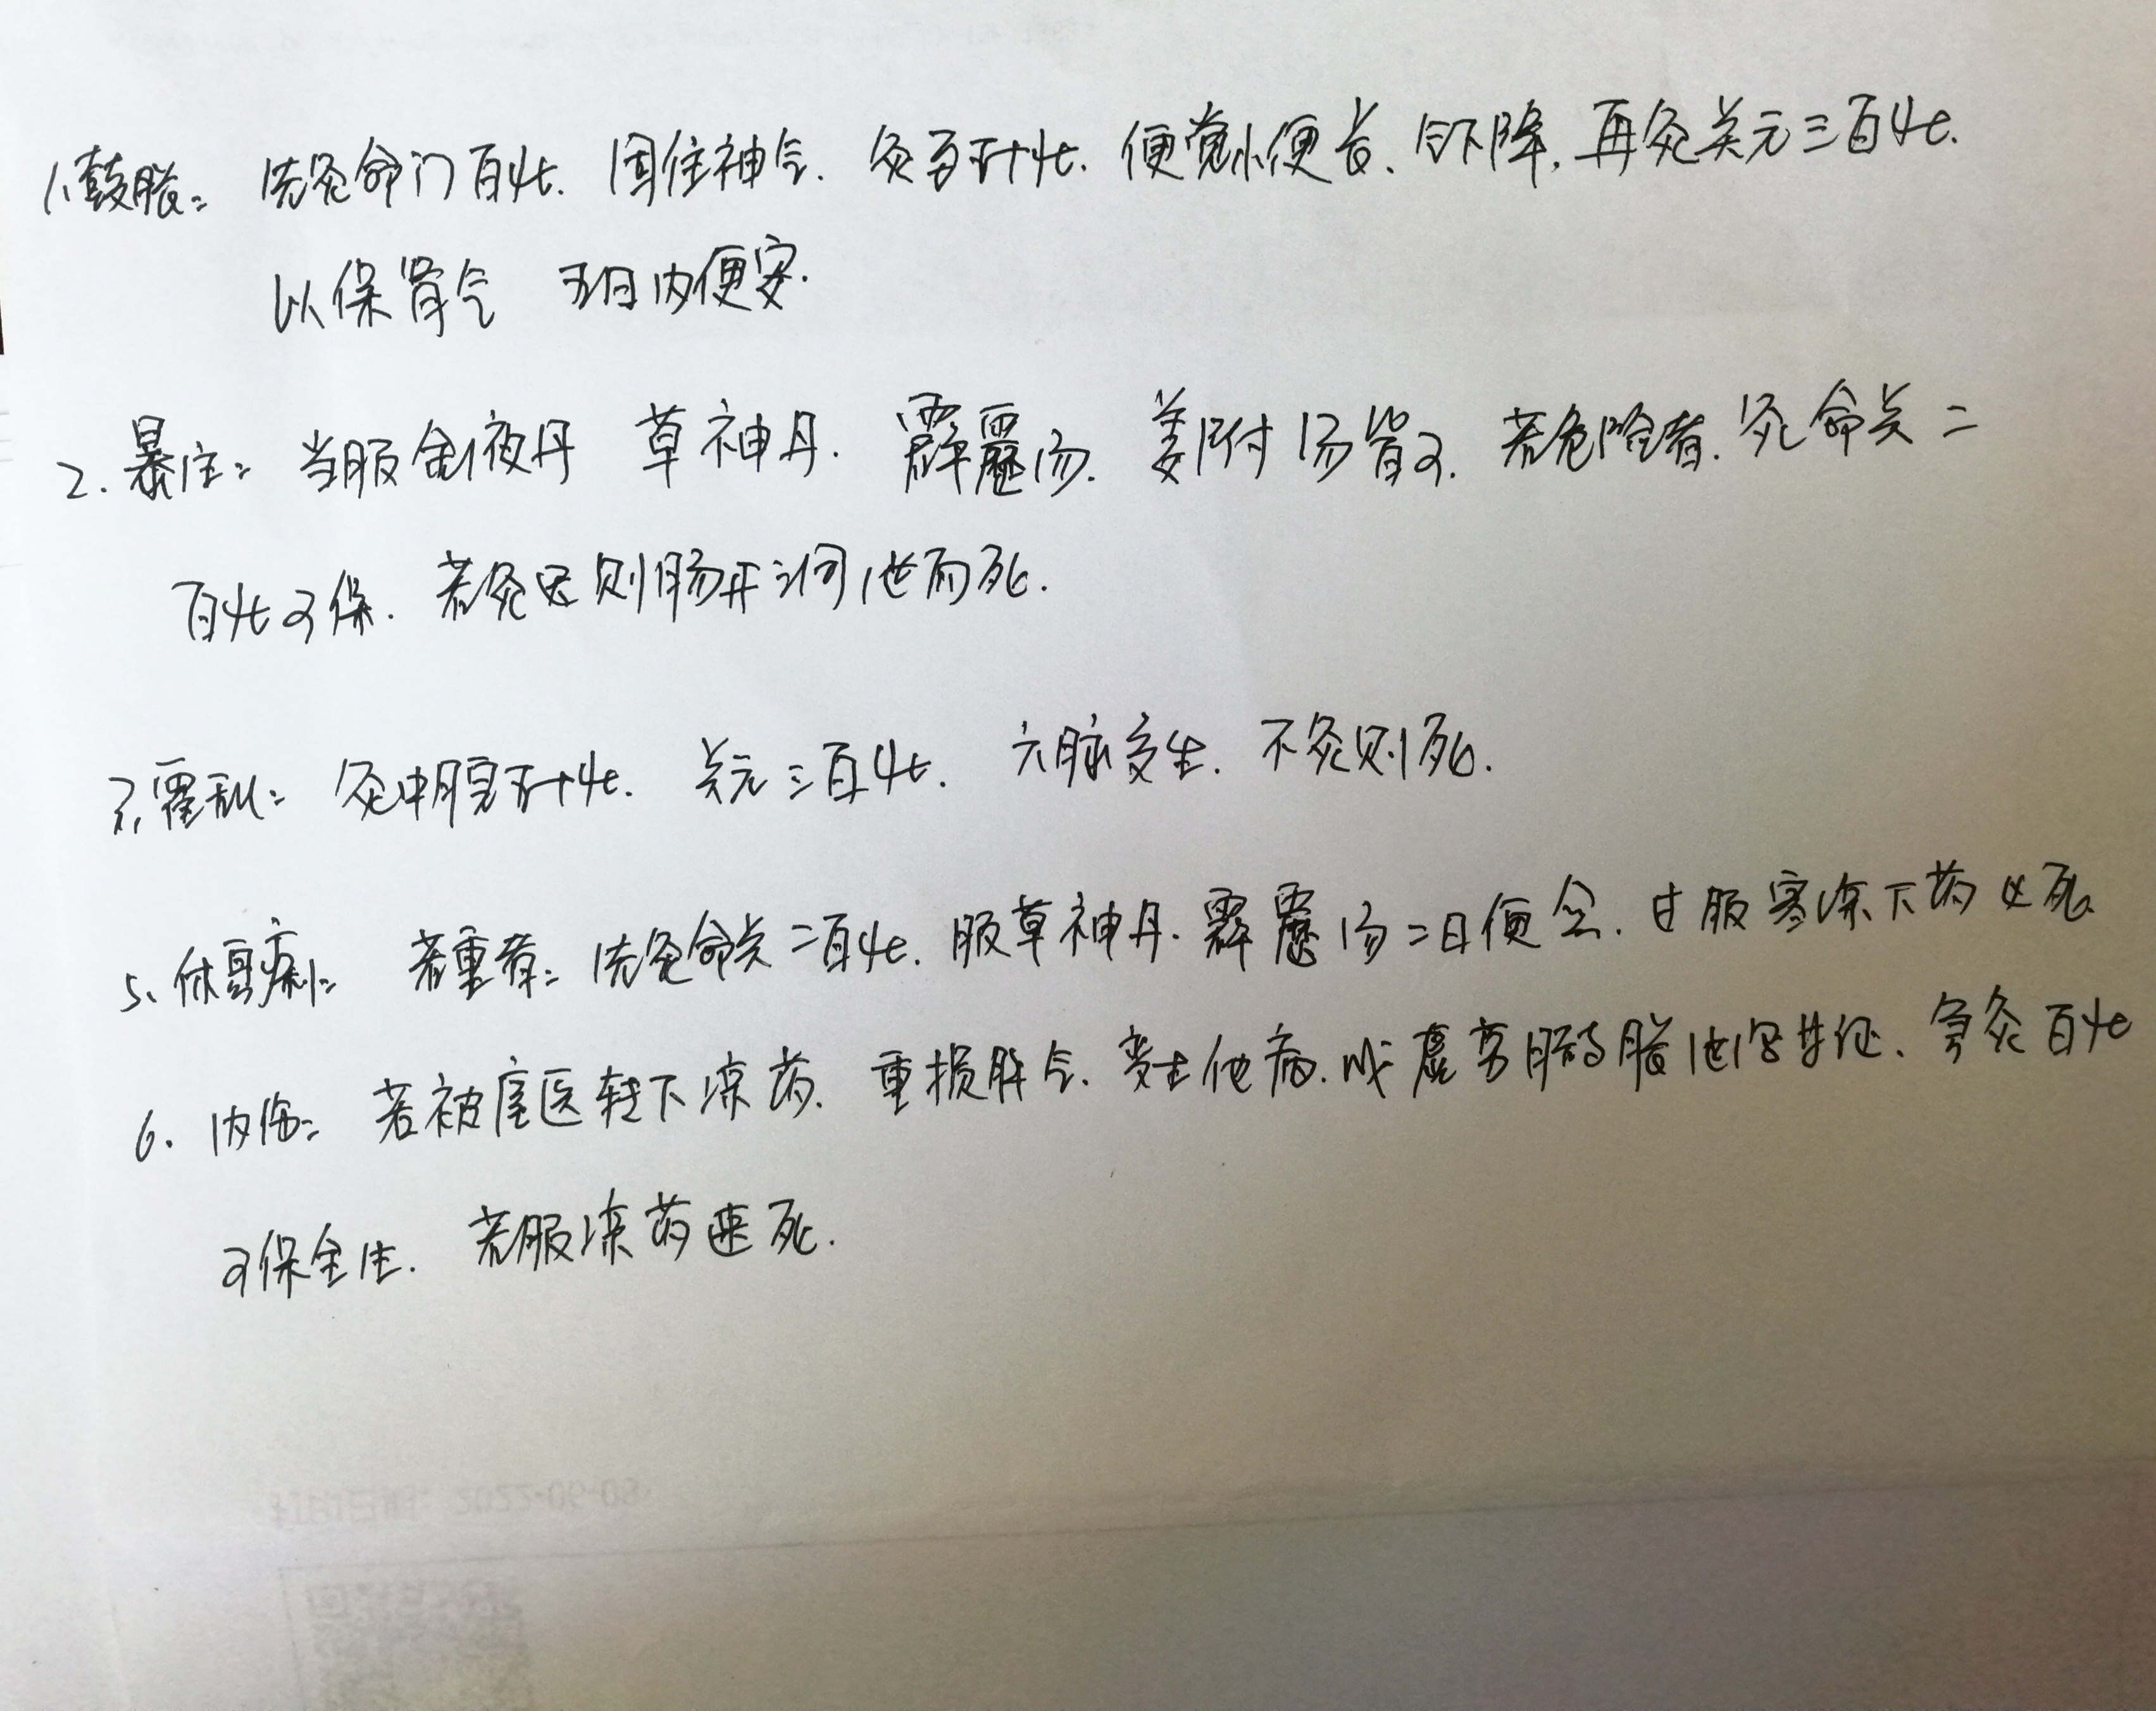 1、鼓胀：先灸命门百壮.固住神气.灸至五十壮.便觉小便长、气下降,再灸关元三百壮.
以保肾气 五日内便安.
2.暴注：当服金液丹 草神丹.霹雳汤.姜附汤皆可.若危险者.灸命关二
百壮可保.若灸迟则肠开洞泄而死.
3、霍乱：灸中脘五十壮.关元三百壮.六脉复生.不灸则死.
5、休息痢：若重者：先灸命关二百壮.服草神丹.霹雳汤二日便愈.过服寒凉下药必死
6.内伤：若被庸医转下凉药.重损脾气.变生他病.成虚劳臌胀泄泻等证、急灸百壮
可保全生.若服凉药速死.
打印日期：2022-09-08